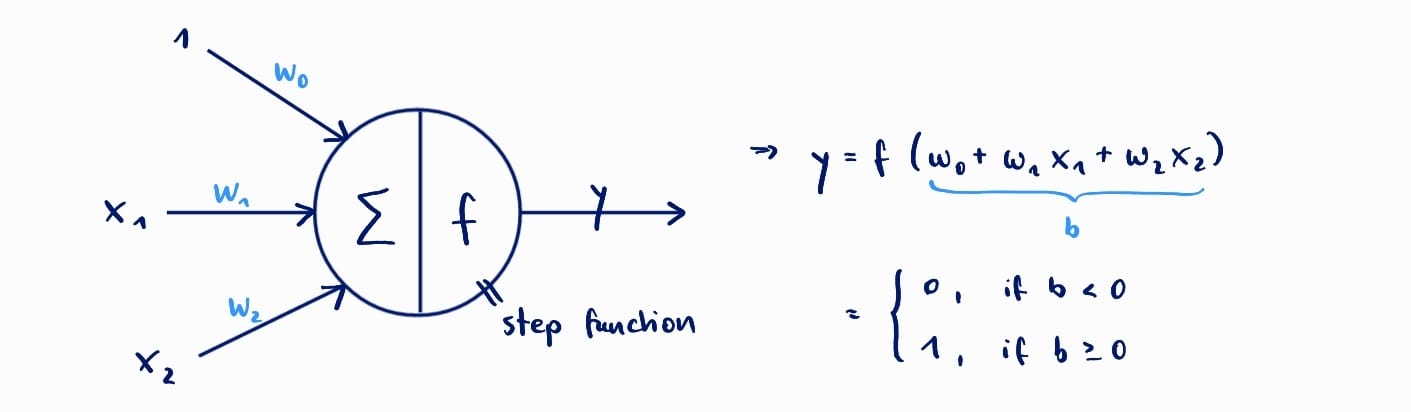 1
w₀
x₁
w₁
Σ
f
y
w₂
x₂
step function
⇒ y = f (w₀ + w₁ x₁ + w₂ x₂)
b
= { 0, if b < 0
1, if b ≥ 0